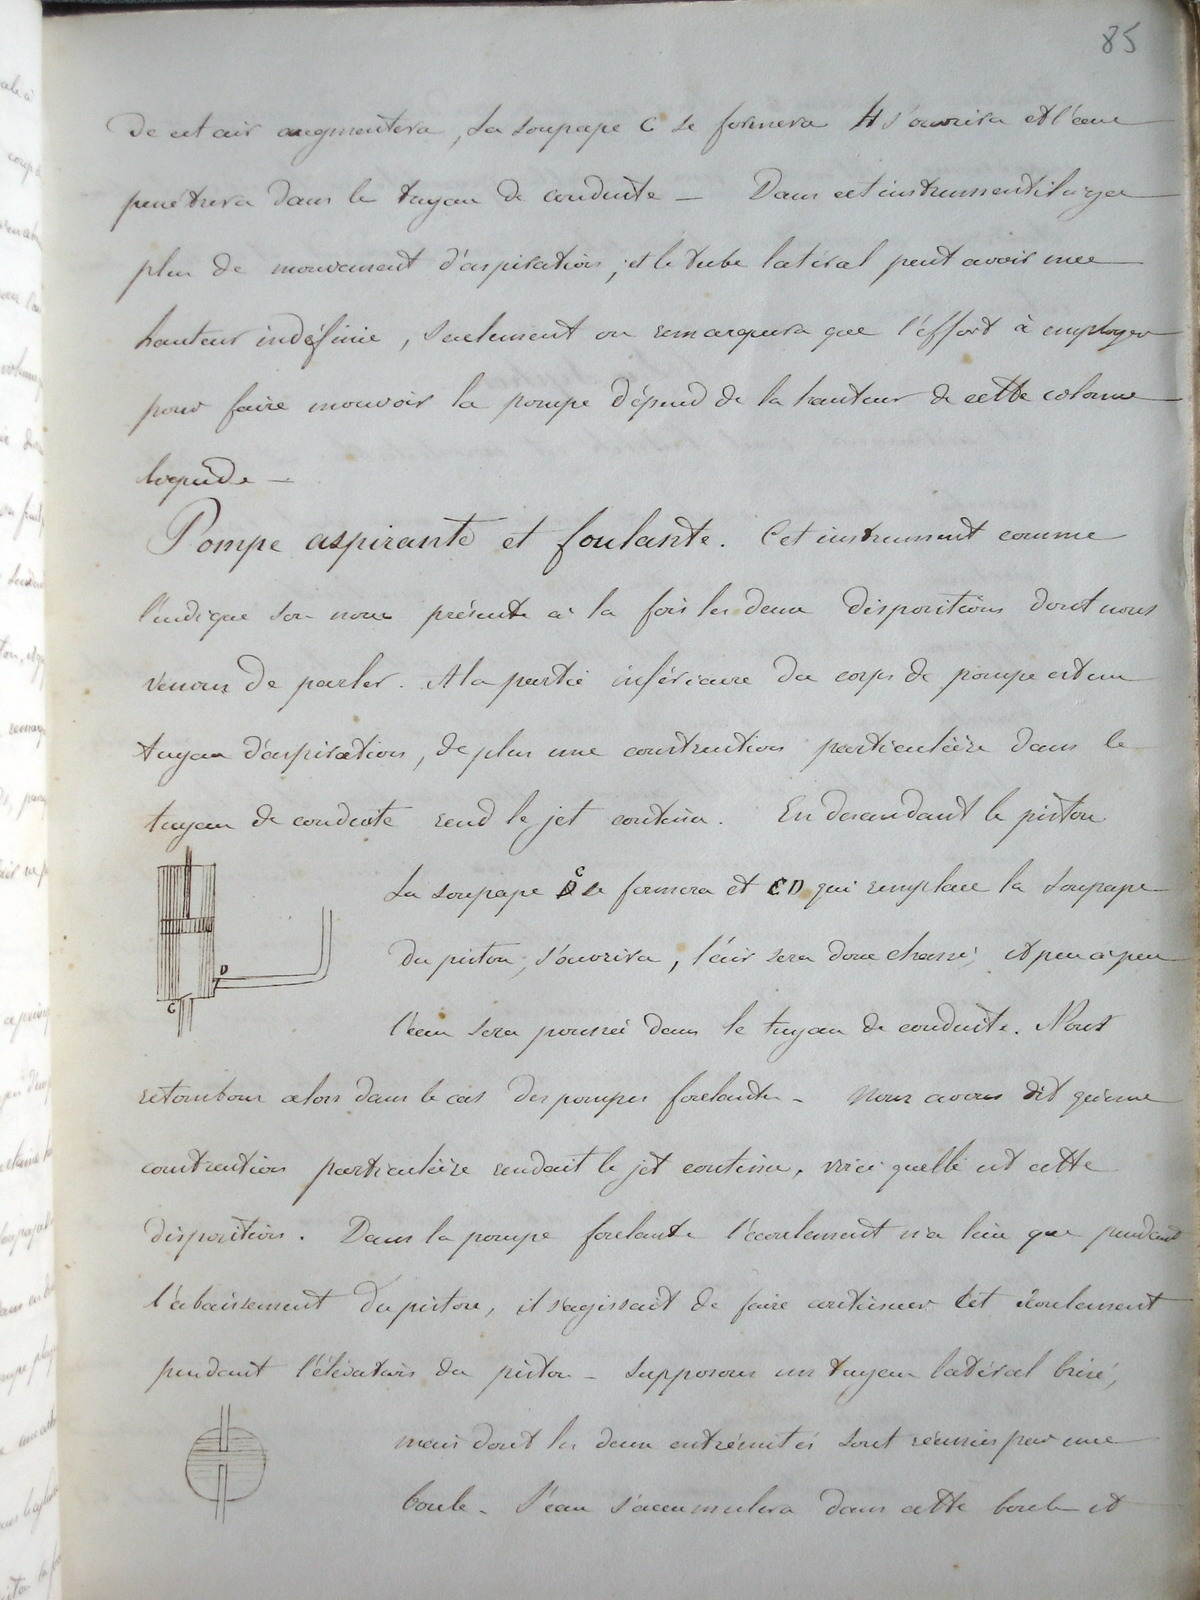 85
de cet air augmentera, la soupape C se fermera H s'ouvrira et l'eau
penétrera dans le tuyau de conduite — Dans cet instrument il n'y a
plus de mouvement d'aspiration, et le tube latéral peut avoir une
hauteur indéfinie, seulement on remarquera que l'effort à employer
pour faire mouvoir la pompe dépend de la hauteur de cette colonne
liquide —
Pompe aspirante et foulante. Cet instrument comme
l'indique son nom présente à la fois les deux dispositions dont nous
venons de parler. A la partie inférieure du corps de pompe est un
tuyau d'aspiration, de plus une construction particulière dans le
tuyau de conduite rend le jet continu. En descendant le piston
la soupape C se fermera et D qui remplace la soupape
du piston, s'ouvrira, l'air sera donc chassé, et peu à peu
D
l'eau sera poussée dans le tuyau de conduite. Nous
C
retombons alors dans le cas des pompes foulantes - Nous avons dit qu'une
construction particulière rendait le jet continu, voici quelle est cette
disposition. Dans la pompe foulante l'écoulement n'a lieu que pendant
l'abaissement du piston, il s'agissait de faire continuer cet écoulement
pendant l'élévation du piston - supposons un tuyau latéral brisé,
mais dont les deux extrémités sont réunies par une
boule. L'eau s'accumulera dans cette boule et